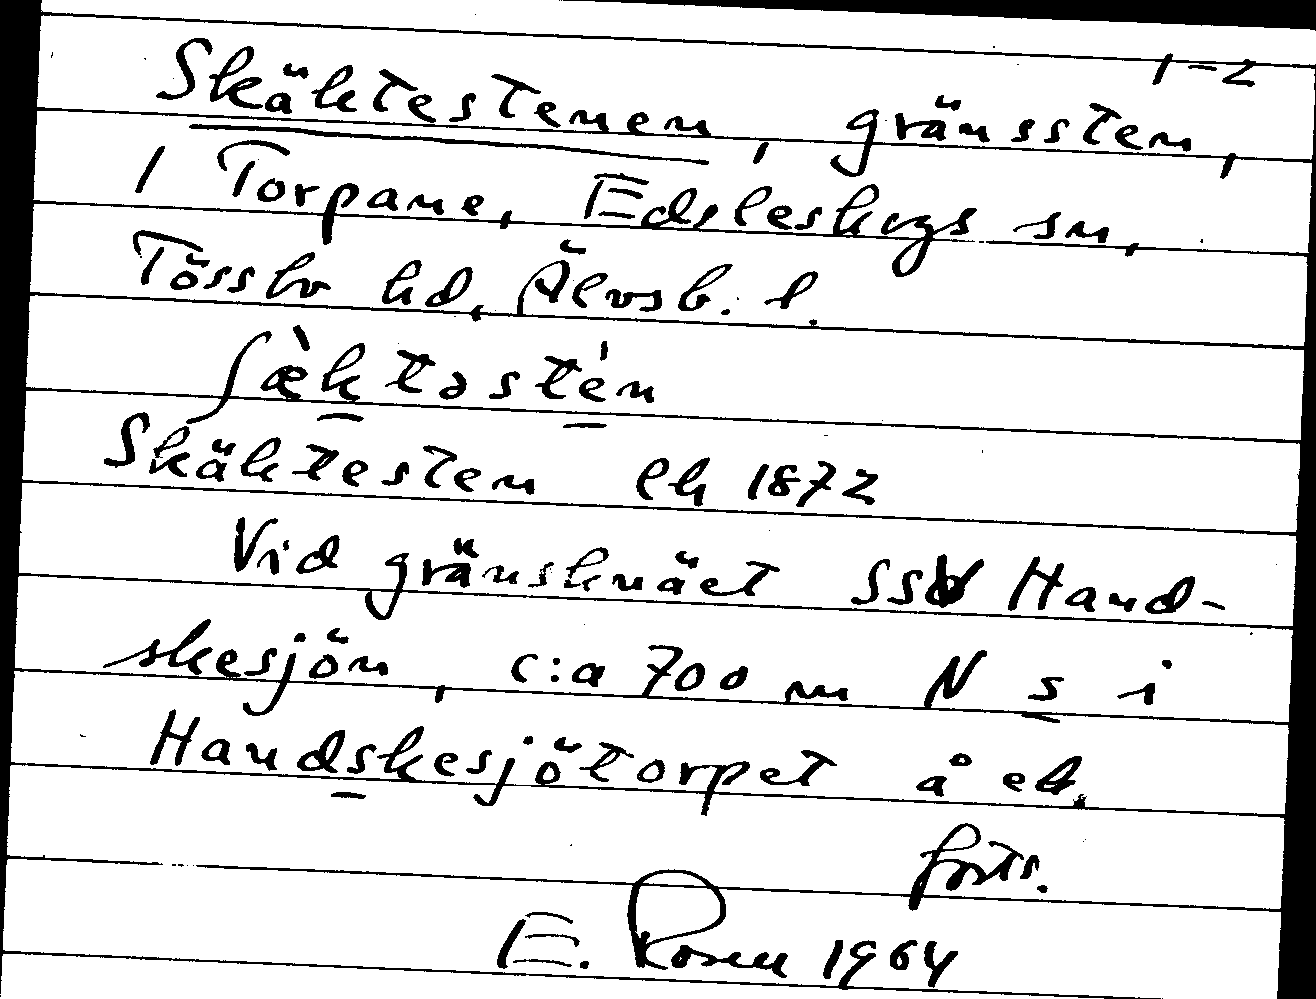 1-2
Skäktestenen, gränssten,
1 Torpane, Edsleskogs sn,
Tössbo hd, Älvsb. l.
ʃæ̀ktəsté̀n
Skäktesten ek 1872
Vid gränsknäet SSV Hand-
skesjön, c:a 700 m N s i
Handskesjötorpet å ek.
forts.
E. Rosen 1964